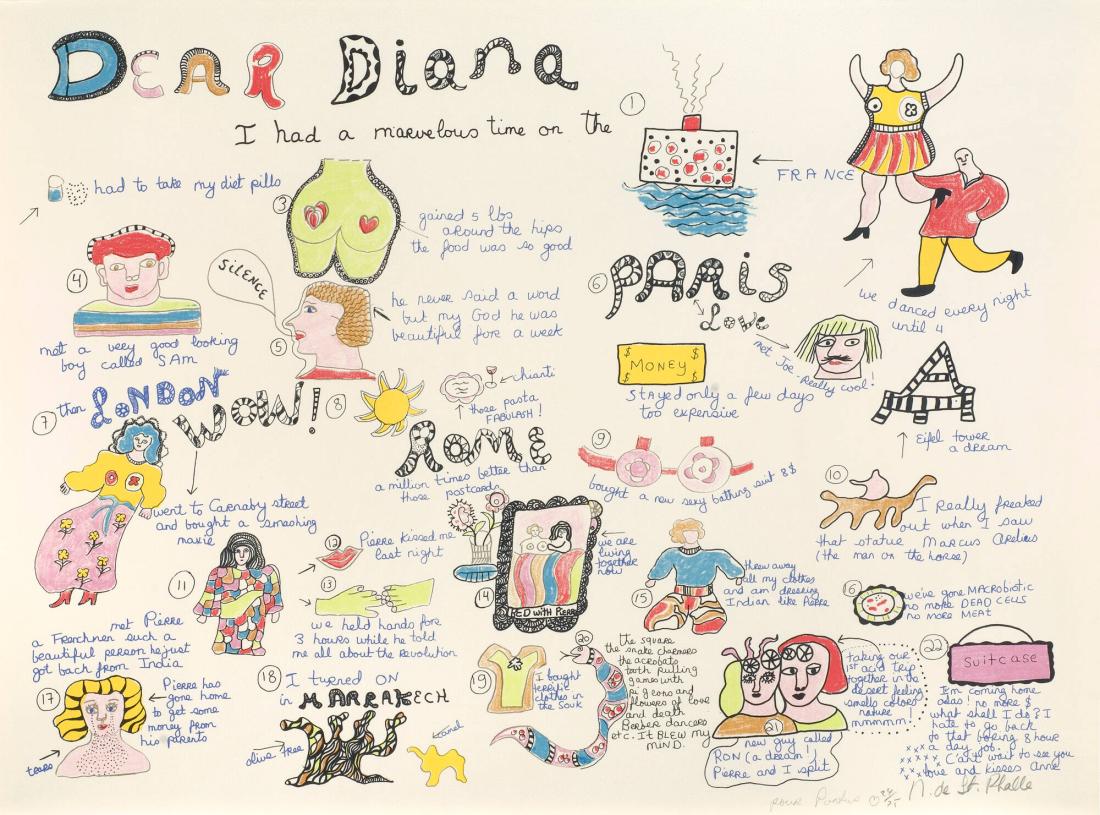 DEAR Diana
I had a marvelous time on the
1
FRANCE
we danced every night
until 4
had to take my diet pills
3
gained 5 lbs
around the hips
the food was so good
4
met a very good looking
boy called SAM
SILENCE
5
he never said a word
but my God he was
beautiful fore a week
6
PARIS
Love
met Joe-Really cool!
$ $
MONEY
$ $
stayed only a few days
too expensive
A
Eifel tower
a dream
7
then LONDON
WOW!
went to Carnaby street
and bought a smashing
maxie
8
chianti
those pasta
FABULASH!
ROME
a million times better than
those postcards
9
bought a new sexy bathing suit 8$
10
I really freaked
out when I saw
that statue Marcus Arelius
(the man on the horse)
11
met Pierre
a Frenchmen such a
beautiful person he just
got back from India
12
Pierre kissed me
last night
13
we held hands for
3 hours while he told
me all about the Revolution
14
BED WITH PIERRE
we are
living
together
now
15
threw away
all my clothes
and am dressing
Indian like Pierre
16
we've gone MACRObiotic
no more DEAD CELLS
no more MEAT
17
Pierre has
gone home
to get some
money from
his parents
tears
18
I turned ON
in MARRAKECH
olive tree
camel
19
I bought
terrific
clothes in
the Souk
20
the square
the snake charmers
the acrobats
tooth pulling
games with
pigeons and
flowers of love
and death
Berber dancers
etc. It BLEW my
MIND.
21
new guy called
RON (a dream!)
Pierre and I split
taking our
1st acid trip
together in the
desert feeling
smells colors
nature!
mmmmm!
22
SUITCASE
I'm coming home
alas! no more $
what shall I do? I
hate to go back
to that boring 8 hour
a day job.
xxxxx Can't wait to see you
xxx love and kisses Anne
pour Pontus 24/75 N. de St. Phalle